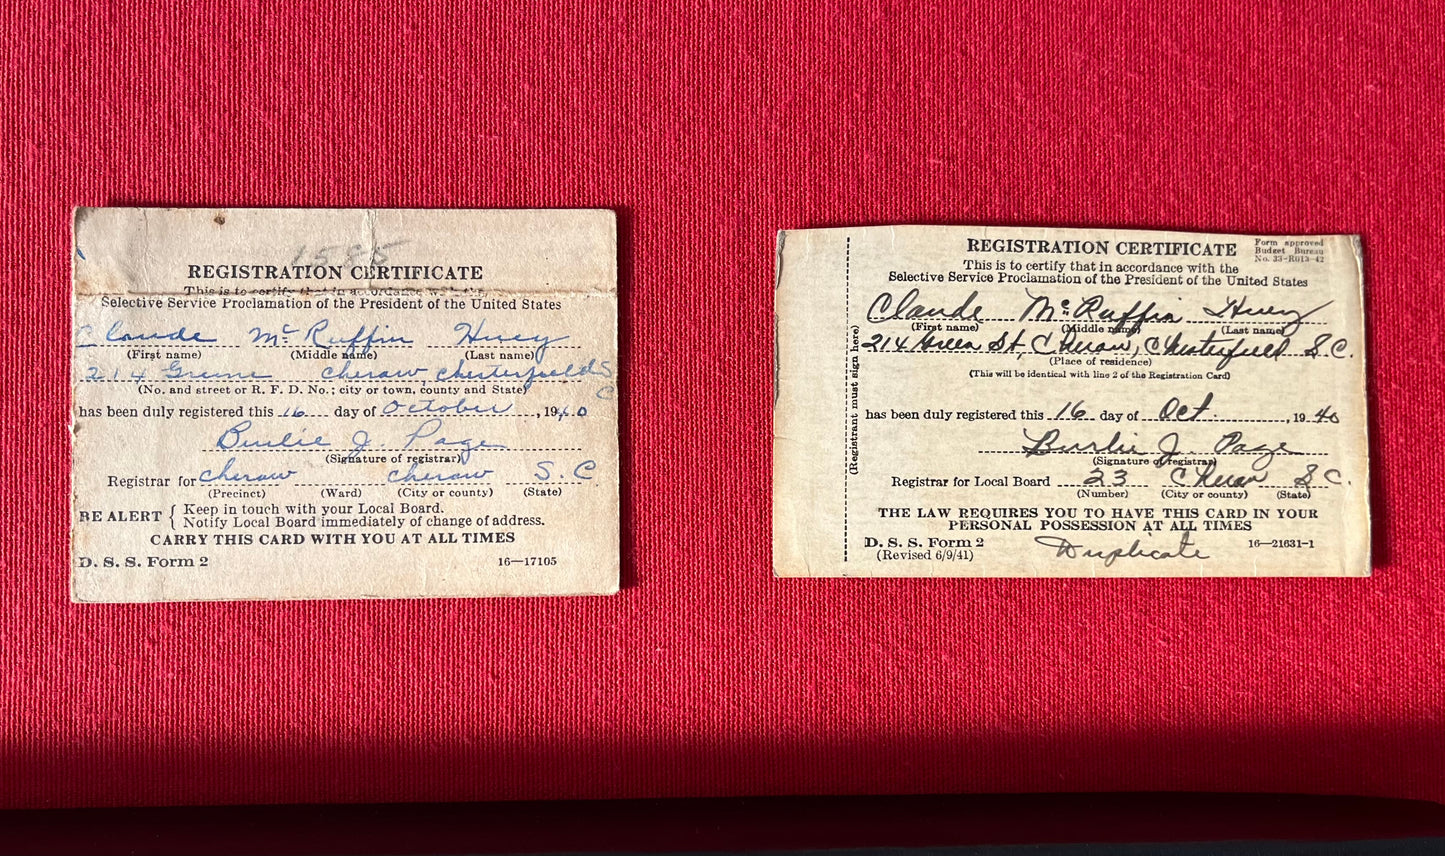 1585
REGISTRATION CERTIFICATE
This is to certify that in accordance with the
Selective Service Proclamation of the President of the United States
Claude Mc Ruffin Huey
(First name) (Middle name) (Last name)
214 Greene Cheraw, Chesterfield S C
(No. and street or R. F. D. No.; city or town, county and State)
has been duly registered this 16 day of October, 1940
Burlie J. Page
(Signature of registrar)
Registrar for Cheraw Cheraw S. C
(Precinct) (Ward) (City or county) (State)
BE ALERT { Keep in touch with your Local Board.
Notify Local Board immediately of change of address.
CARRY THIS CARD WITH YOU AT ALL TIMES
D. S. S. Form 2 16—17105
REGISTRATION CERTIFICATE
Form approved
Budget Bureau
No. 33-R013-42
This is to certify that in accordance with the
Selective Service Proclamation of the President of the United States
Claude Mc Ruffin Huey
(First name) (Middle name) (Last name)
214 Green St, Cheraw, Chesterfield S.C.
(Place of residence)
(This will be identical with line 2 of the Registration Card)
has been duly registered this 16 day of Oct. , 1940
Burlie J. Page
(Signature of registrar)
Registrar for Local Board 23 Cheraw S.C.
(Number) (City or county) (State)
THE LAW REQUIRES YOU TO HAVE THIS CARD IN YOUR
PERSONAL POSSESSION AT ALL TIMES
D. S. S. Form 2 16—21631-1
(Revised 6/9/41) Duplicate
(Registrant must sign here)